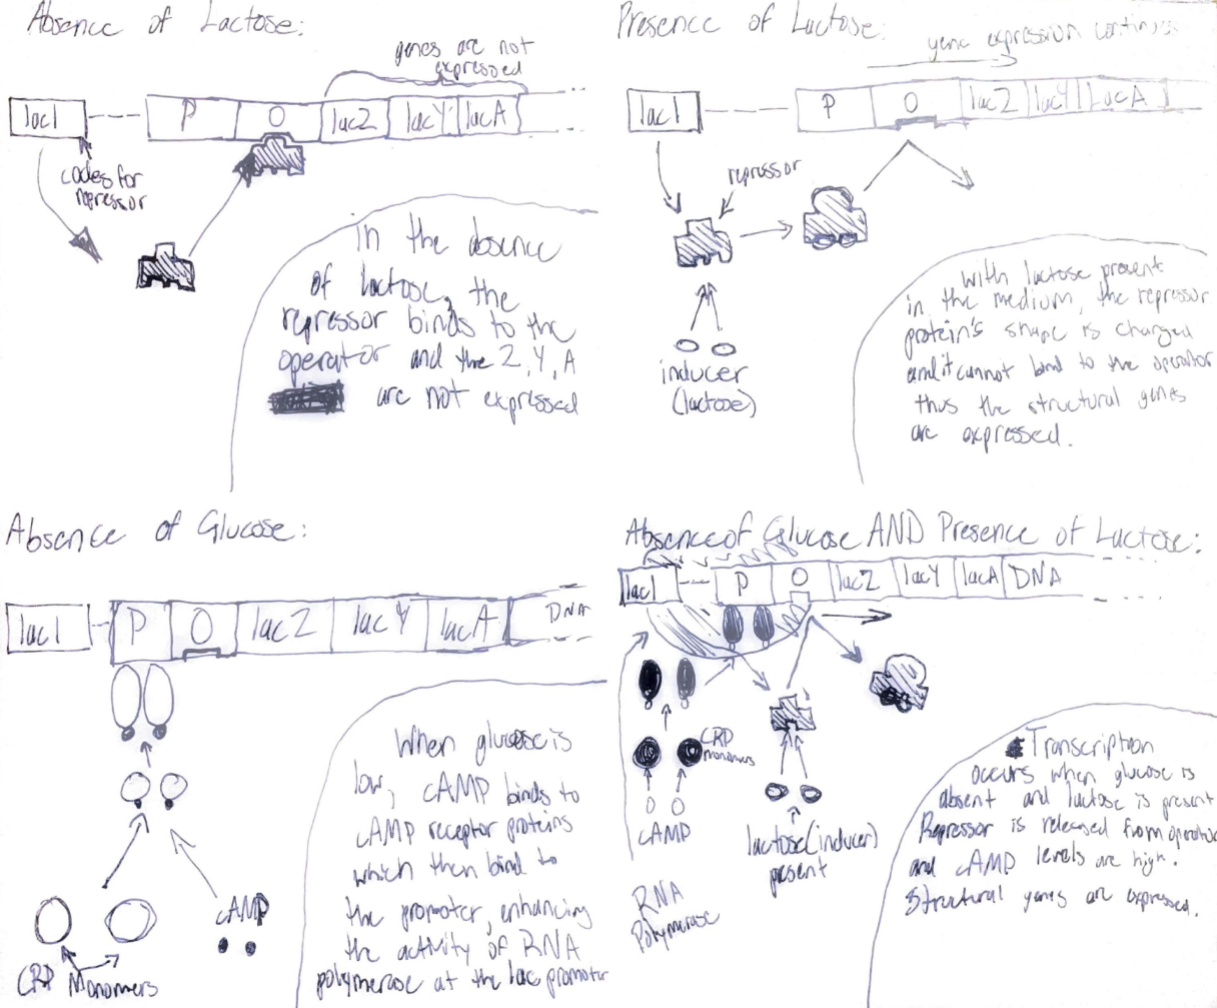 Absence of Lactose:
genes are not
expressed
lac1
P
O
lacZ
lacY
lacA
codes for
repressor
in the absence
of lactose, the
repressor binds to the
operator and the Z, Y, A
are not expressed
Presence of Lactose:
gene expression continues
lac1
P
O
lacZ
lacY
LacA
repressor
inducer
(lactose)
with lactose present
in the medium, the repressor
protein's shape is changed
and it cannot bind to the operator
thus the structural genes
are expressed.
Absence of Glucose:
lac1
P
O
lacZ
lacY
lacA
DNA
cAMP
CRP Monomers
When glucose is
low, cAMP binds to
cAMP receptor proteins
which then bind to
the promoter, enhancing
the activity of RNA
polymerase at the lac promoter
Absence of Glucose AND Presence of Lactose:
lac1
P
O
lacZ
lacY
lacA
DNA
CRP
monomers
cAMP
lactose (inducer)
present
RNA
Polymerase
Transcription
occurs when glucose is
absent and lactose is present
Repressor is released from operator
and cAMP levels are high.
Structural genes are expressed.